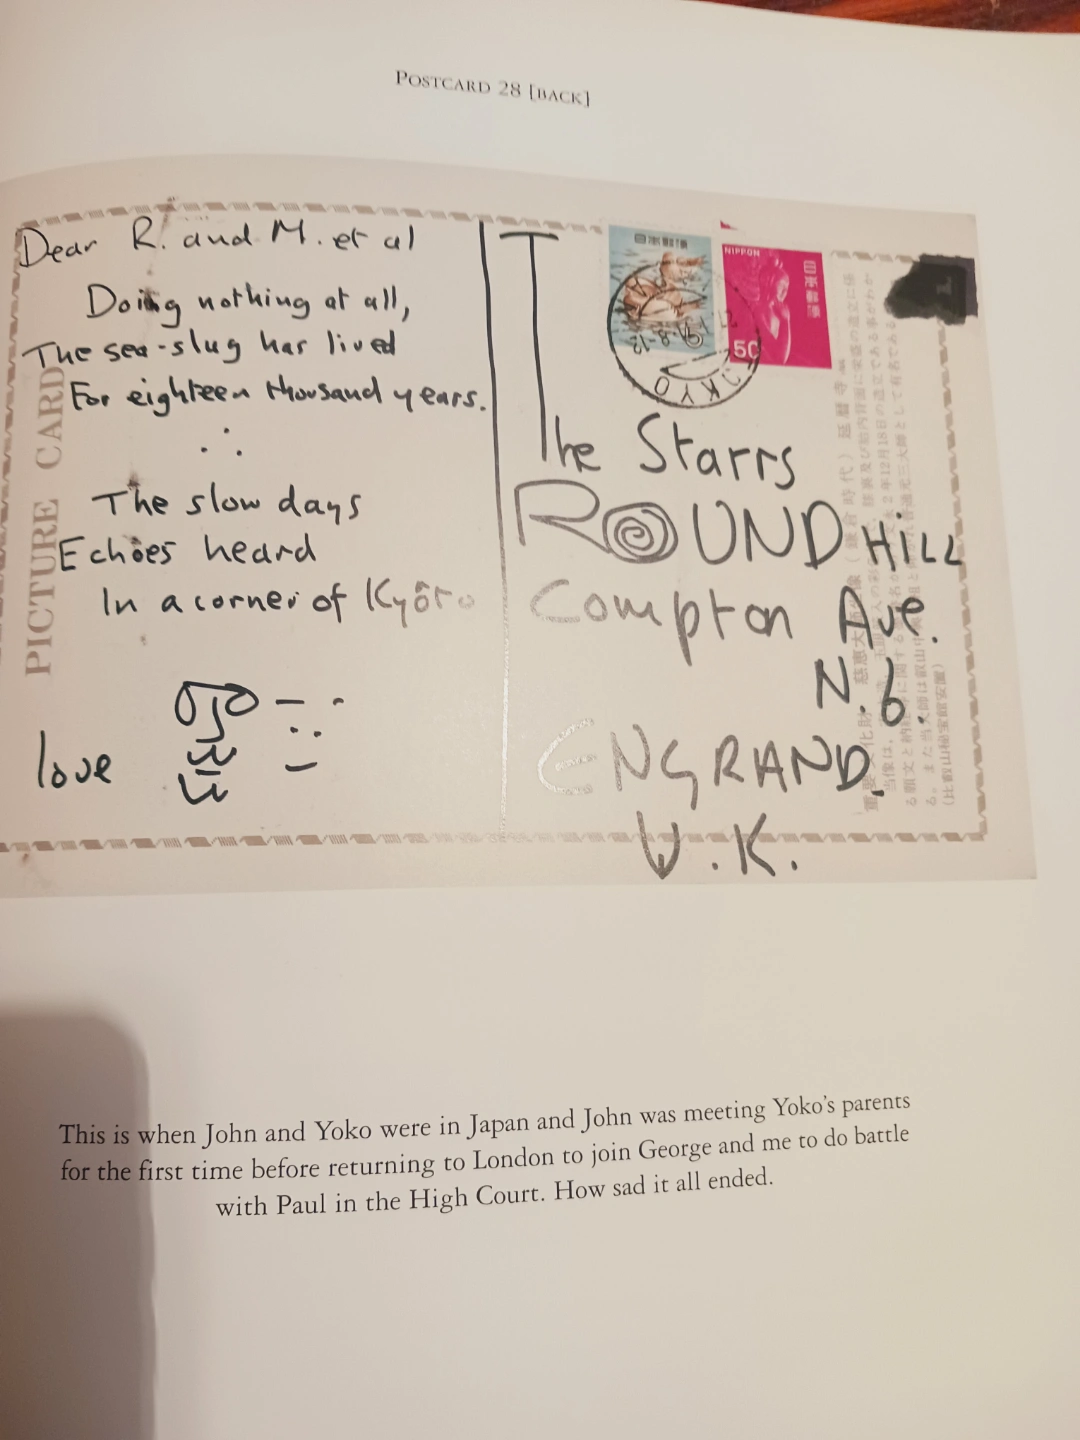 POSTCARD 28 [BACK]
Dear R. and M. et al
Doing nothing at all,
The sea-slug has lived
For eighteen thousand years.
The slow days
Echoes heard
In a corner of Kyôto
love
PICTURE CARD
日本郵便
NIPPON
日本郵便
50
TOKYO
The Starrs
ROUND HILL
Compton Ave.
N.6.
ENGRAND.
U.K.
(比叡山秘宝館安置)
This is when John and Yoko were in Japan and John was meeting Yoko's parents
for the first time before returning to London to join George and me to do battle
with Paul in the High Court. How sad it all ended.